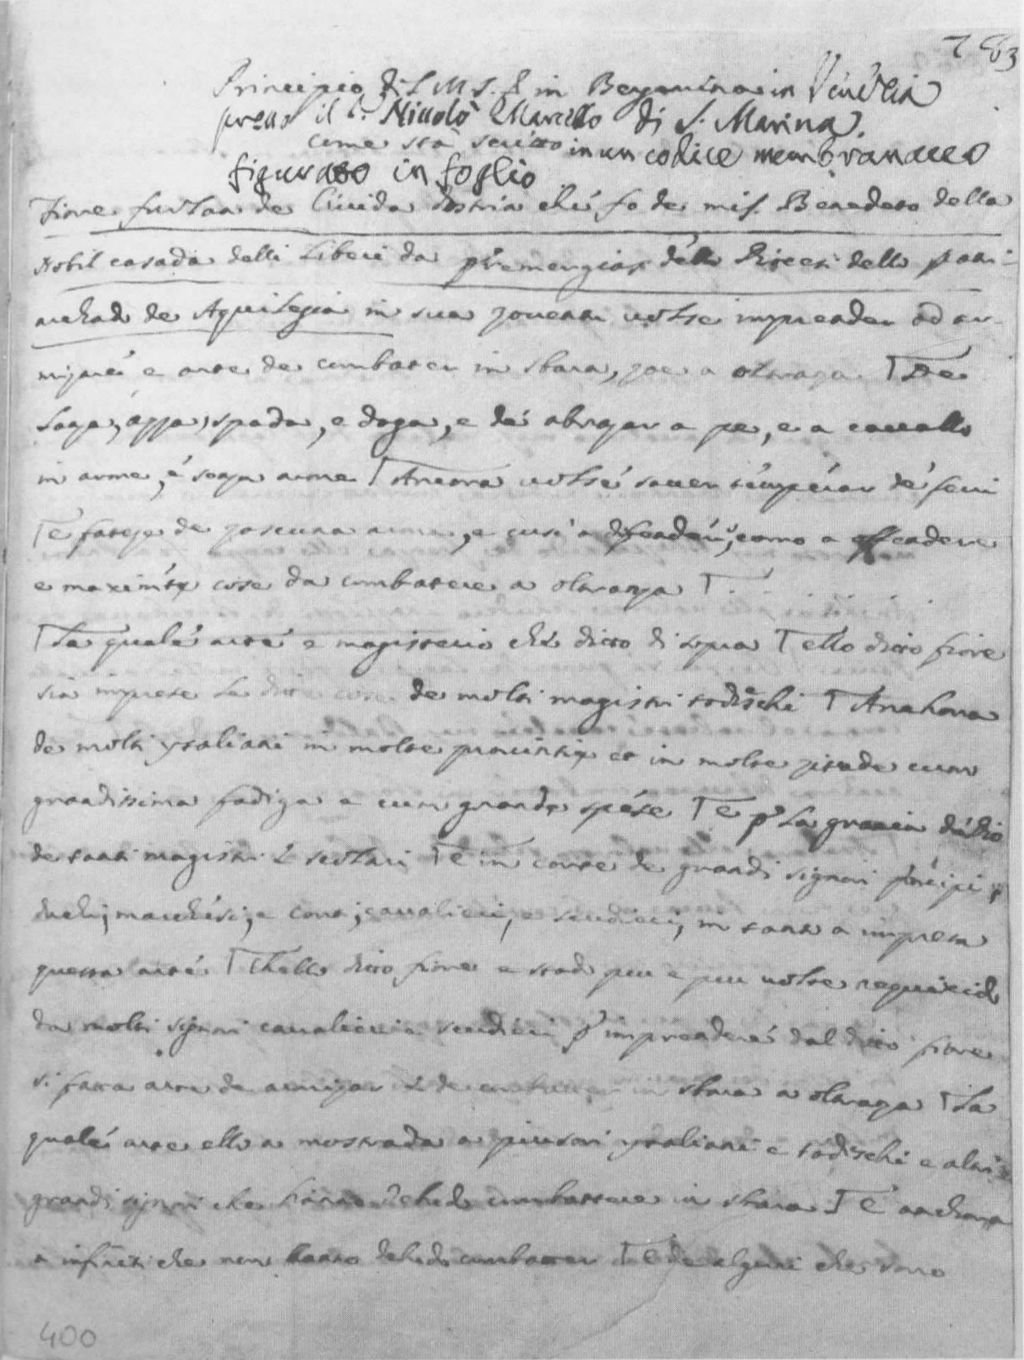 783
Principio di S. M. S. in Bergamina in Venetia
presso il S. Nicolò Marcello di S. Marina.
come sta scritto in un codice membranaceo
figurato in foglio
Fiore furlan de Cividà dostria che fo de mis. Benedeto della
Nobil casada delli Liberi da premergias della diocesi dello patri-
archado de Aquilegia in sua joventù volse imprender ad ar
miçare e arte de combater in sbara, çoe a oltrança Te de
lança, açça, spada, e daga, e de abraçar a pe, e a cavallo
in arme, e sença arme T Ancora volse saver tempere de ferri
Te fateçe de çascuna arma, e cusi a defendere, como a offendere
e maximis cose da combatere a oltrança T . . . . . .
T La quale arte e magisterio che ditto di sopra T ello ditto fiore
sia imprese le dite cose de molti magistri todeschi T Anchora
de molti ytaliani in molte provintie et in molte citade cum
grandissima fadiga e cum grande spese T E p la gracia de dio
de tanti magistri e scolari T e in corte de grandi signori principi
duchi, marchesi, e conti, cavalieri, e scudieri, in tanto a impresa
questa arte T Chello ditto fiore e stado piu e piu volte requirido
da molti signori cavalieri e scudieri p imprendere dal ditto fiore
si fatta arte de armiçar e de combatter in sbara a oltrança T La
quale arte ello a mostrada a piusori ytaliani e todeschi e altri
grandi signori che hanno debudo combattere in sbara T E anchora
a infiniti che non hano debudo combatter T E de alguni che sono
400